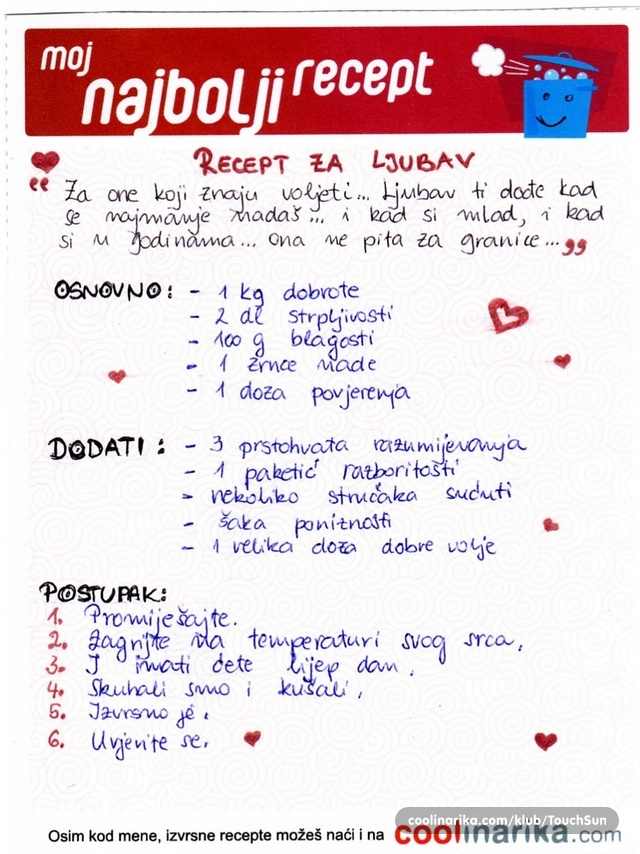 moj
najbolji recept
RECEPT ZA LJUBAV
" Za one koji znaju voljeti... Ljubav ti dođe kad
se najmanje nadaš... i kad si mlad, i kad
si u godinama... ona ne pita za granice... "
OSNOVNO: - 1 kg dobrote
- 2 dl strpljivosti
- 100 g blagosti
- 1 zrnce nade
- 1 doza povjerenja
DODATI: - 3 prstohvata razumijevanja
- 1 paketić razboritosti
- nekoliko stručaka sućuti
- šaka poniznosti
- 1 velika doza dobre volje
POSTUPAK:
1. Promiješajte.
2. Zagrijte na temperaturi svog srca,
3. I imati ćete lijep dan.
4. Skuhali smo i kušali,
5. Izvrsno je.
6. Uvjerite se.
coolinarika.com/klub/TouchSun
Osim kod mene, izvrsne recepte možeš naći i na coolinarika.com